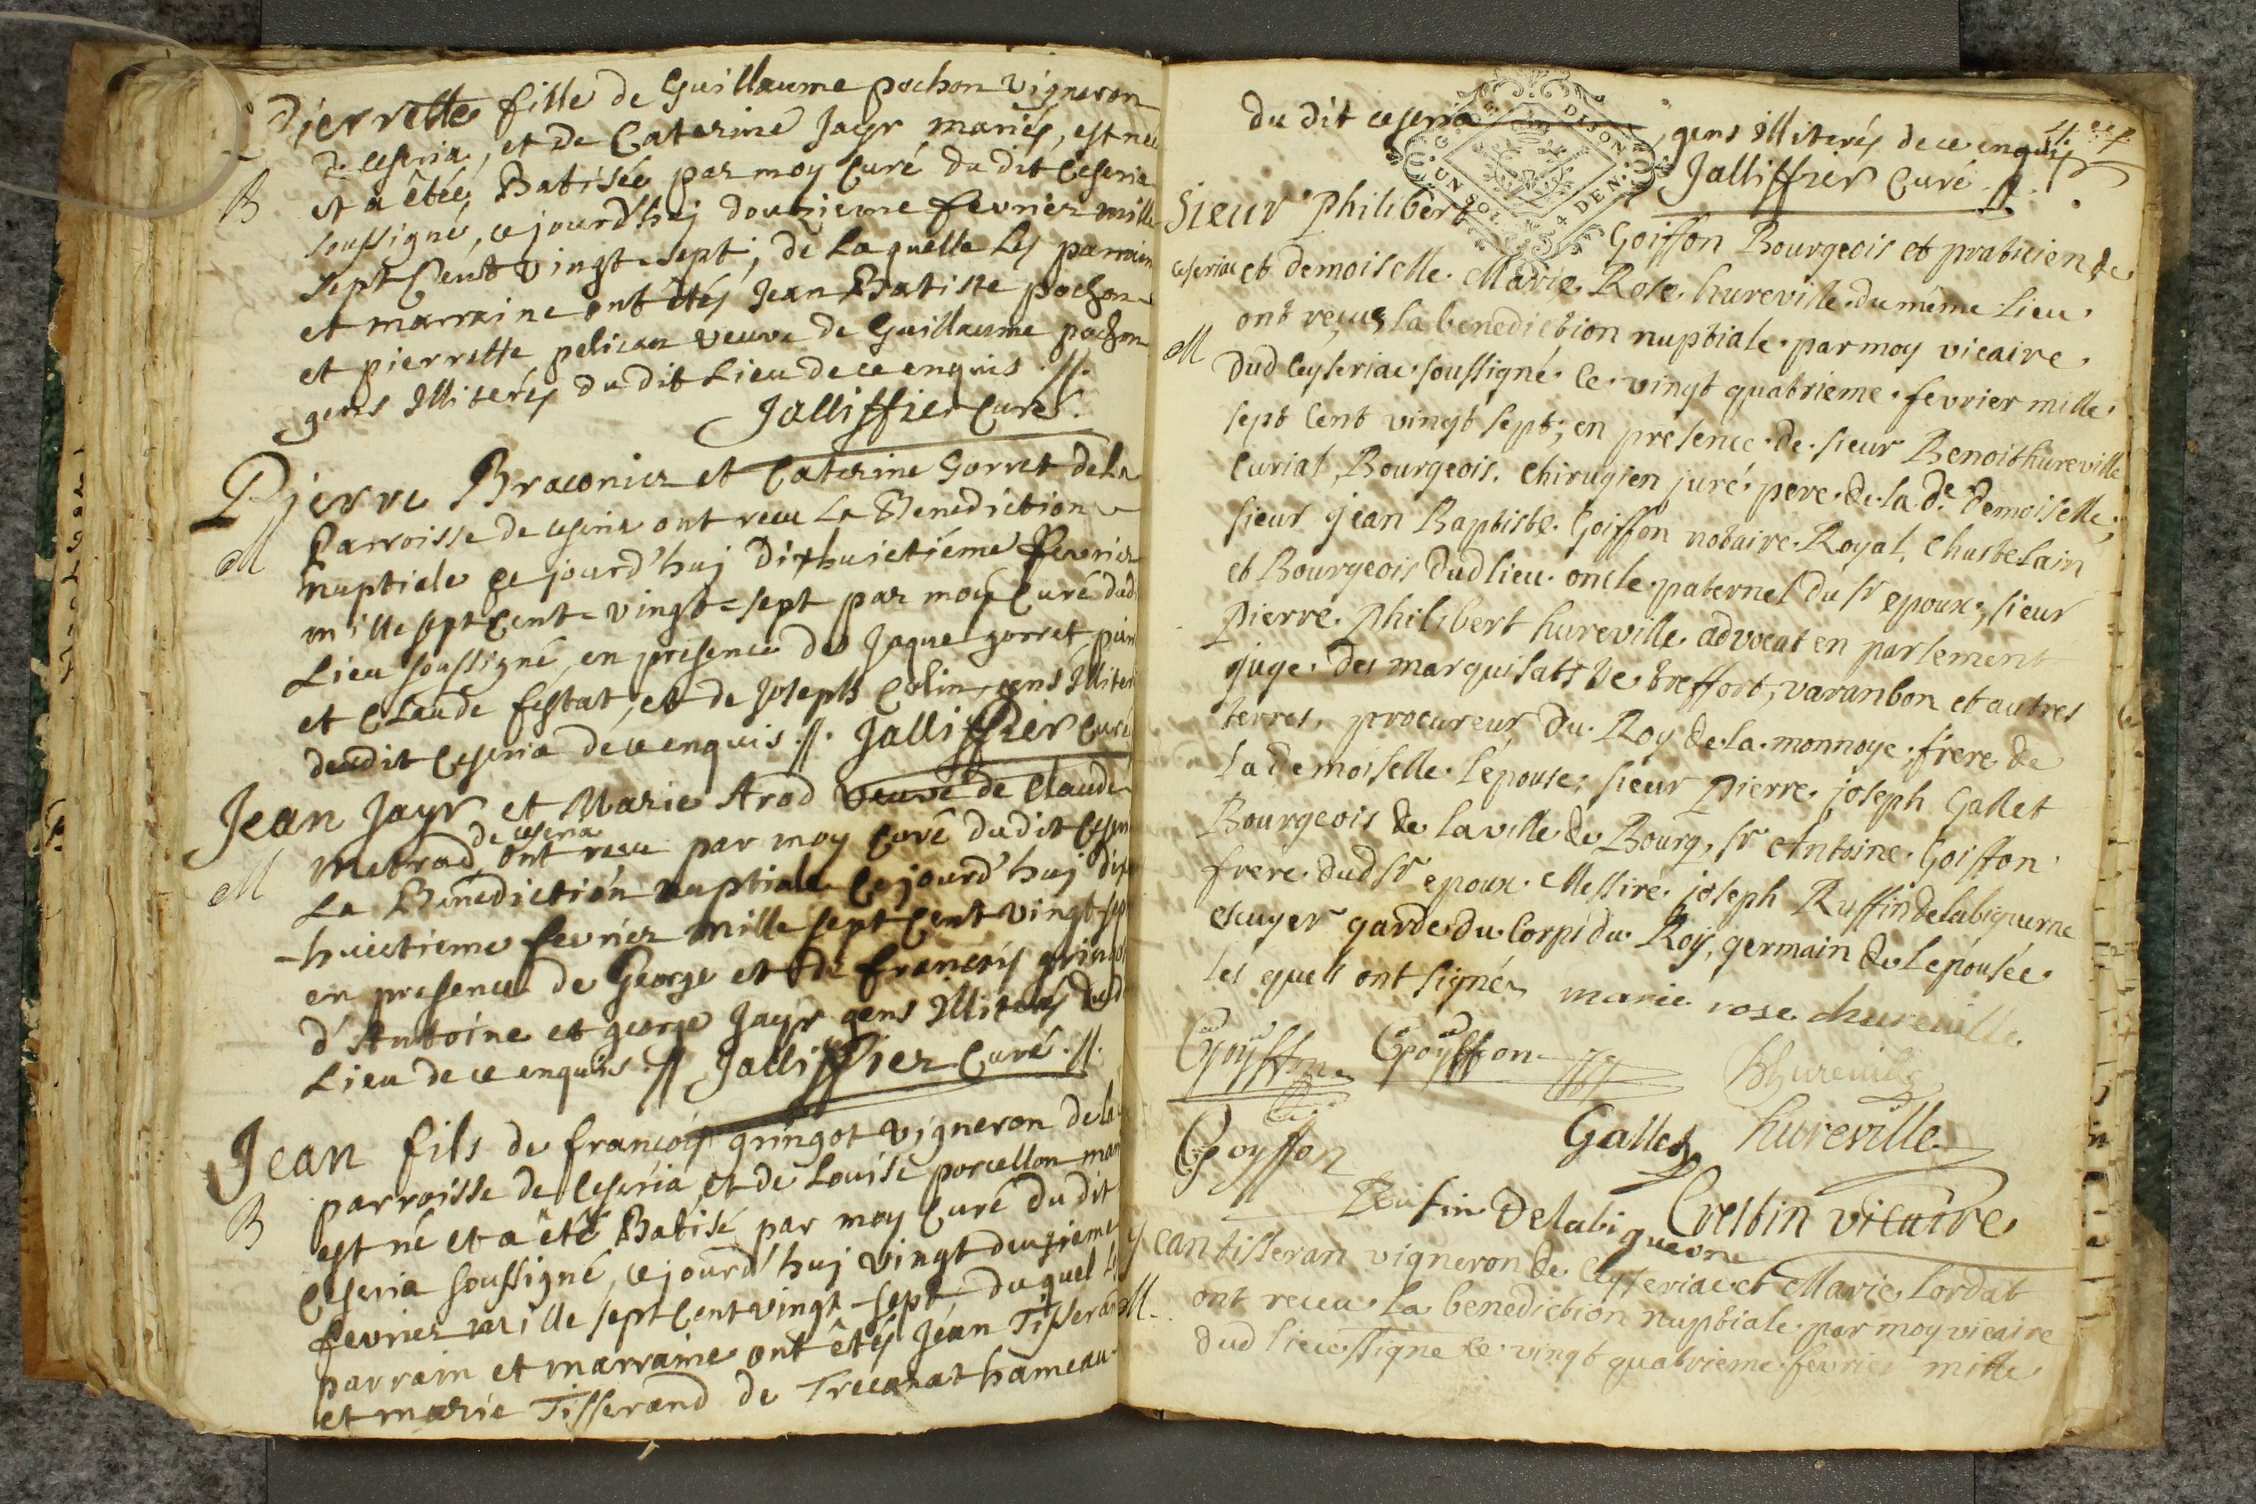 Pierrette fille de Guillaume pochon vigneron
de ceseria, et de Caterine Jayr mariés, est nee
B
et a êtéé Batisée par moy Curé du dit Ceseria
soussigné, ce jourd'huj douzieme fevrier mille
sept Cent vingt=sept; de laquelle les parrain
et marraine ont êtés Jean Batiste pochon
et pierrette pelican veuve de Guillaume pochon
gens Illiterés du dit Lieu de ce enquis .//.
Jalliffier Curé.
Pierre Braconier et Caterine Gorret de la
Parroisse de ceseria ont receu La Benediction
M
nuptiale ce jourd'huj dixhuictiéme fevrier
mille sept Cent=vingt=sept par moy Curé dud
Lieu soussigné, en presence de Jaque gorret,
et Claude festat, et de Joseph Colin, gens Illiter
dudit Ceseria de ce enquis .//. Jalliffier Curé
Jean Jayr et Marie Arod veuve de Claude
de ceseria
Metrad ont receu par moy Curé dudit Ceseri
M
La Benediction nuptiale Ce jourd'huj dix
-huictieme fevrier mille sept Cent vingt-sep
en presence de George et de françois gringot
d'Antoine et george Jayr gens Illiterés dud
Lieu de ce enquis .// Jalliffier Curé .//.
Jean fils de françois gringot vigneron de la
parroisse de Ceseria, et de Louise porcellon mar
B
est né et a êté Batisé par moy Curé du dit
Ceseria soussigné, ce jourd'huj vingt deuzieme
fevrier mille sept Cent vingt-sept, duquel les
parrain et marraine ont êtés Jean Tisseran
et marie Tisserand de Treconat hameau
du dit ceseria, gens illiterés de ce enquis
G. DE DIJON
UN SOL 4 DEN.
Jalliffier Curé .//.
Sieur Philibert Goiffon Bourgeois et praticien de
ceseriac et demoiselle Marie Rose hureville du méme Lieu
ont reçus la benediction nuptiale par moy vicaire
M
dud Ceyseriac soussigné le vingt quatrieme fevrier mille
sept Cent vingt sept; en presence de sieur Benoit hureville
Curial, Bourgeois, Chirugien juré pere de la de demoiselle;
sieur jean Baptiste Goiffon notaire Royal, Chastelain
et Bourgeois dud lieu oncle paternel du sr epoux, sieur
Pierre Philibert hureville advocat en parlement
juge des marquisats de treffort, varanbon et autres
terres, procureur du Roy de la monnoye; frere de
la demoiselle l'épouse; sieur Pierre joseph Gallet
Bourgeois de la ville de Bourg, sr Antoine Goiffon
frere dud sr epoux Messire joseph Ruffin de labiguerne
escuyer garde du Corps du Roy, germain de l'épousée
les quels ont signés marie rose hureville
Goyffon Goyffon Bhureville
Goyffon Gallet hureville
Ruffin Delabiguerne Crestin vicaire
Jean tisseran vigneron de Ceyseriac et Marie Lordat
M
ont receu la benediction nuptiale par moy vicaire
dud lieu ssigné le vingt quatrieme fevrier mille